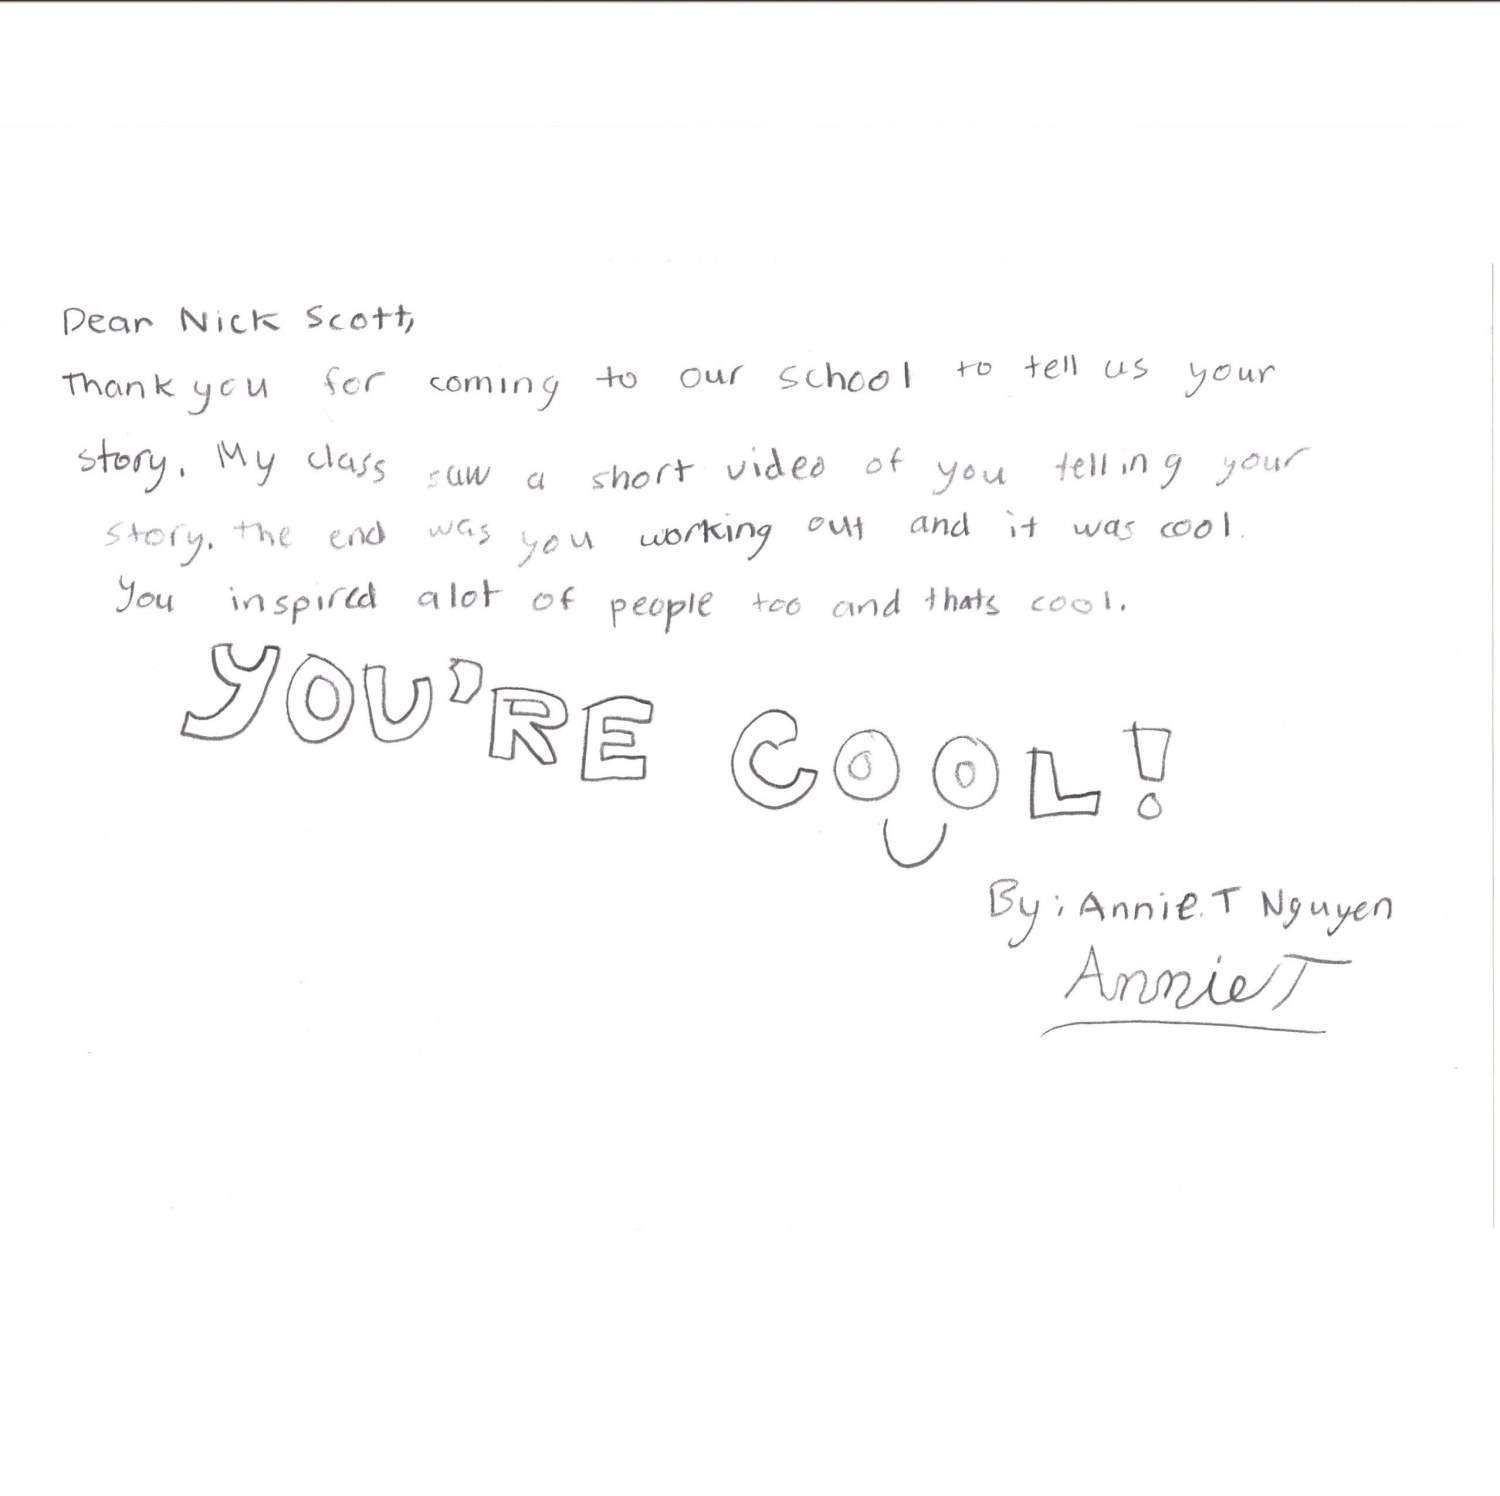 Dear Nick Scott,
Thank you for coming to our school to tell us your
story. My class saw a short video of you telling your
story. the end was you working out and it was cool.
You inspired alot of people too and thats cool.
YOU'RE COOL!
By: Annie.T Nguyen
Annie T